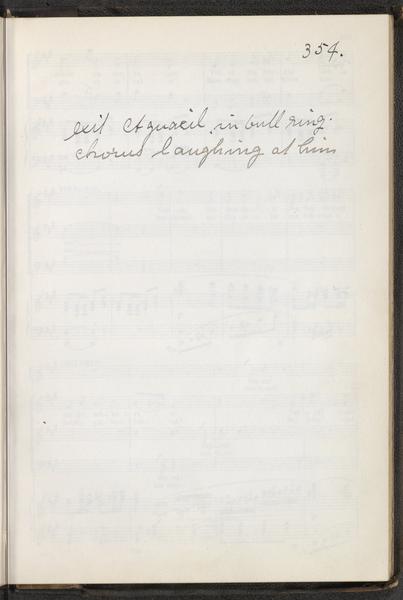 354.
exit Alguacil in bull ring.
chorus laughing at him